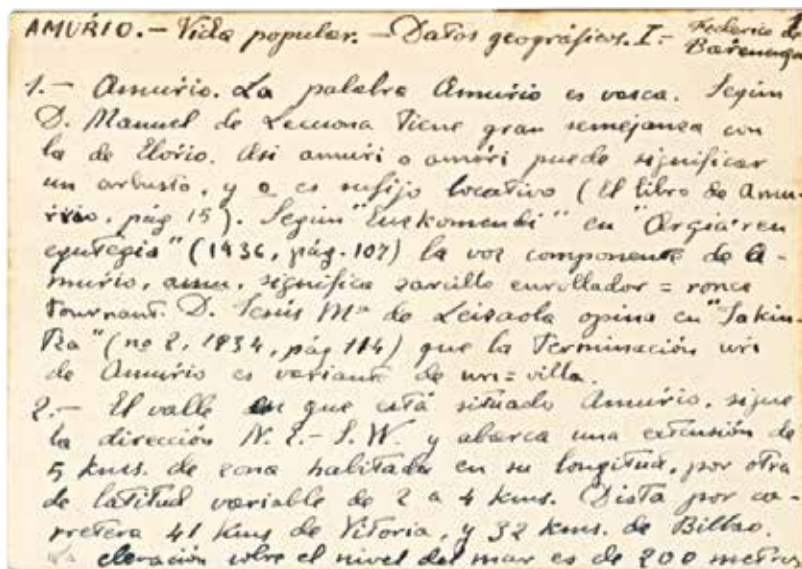 AMUŔIO.- Vida popular. - Datos geográficos. I.- Federico de
Bařenengoa
1.- Amuŕio. La palabra Amuŕio es vasca. Según
D. Manuel de Lecuona tiene gran semejanza con
la de Eloŕio. Asi amuŕi o amoŕi puede significar
un arbusto, y o es sufijo locativo (El libro de Amu-
rrio, pág 15). Según "Euskomendi" en "Argia'ren
egutegia" (1936, pág. 107) la voz componente de A-
muŕio, amu, significa zarcillo enrollador = ronce
tournant. D. Jesús Mª de Leizaola opina en "Jakin-
tza" (nº 2, 1934, pág 114) que la terminación uri
de Amuŕio es variante de uri = villa.
2.- El valle en que está situado Amuŕio, sigue
la dirección N.E.- S.W. y abarca una extensión de
5 kms. de zona habitada en su longitud, por otra
de latitud variable de 2 a 4 kms. Dista por ca-
ŕetera 41 kms de Vitoria, y 32 kms. de Bilbao.
La elevación sobre el nivel del mar es de 200 metros